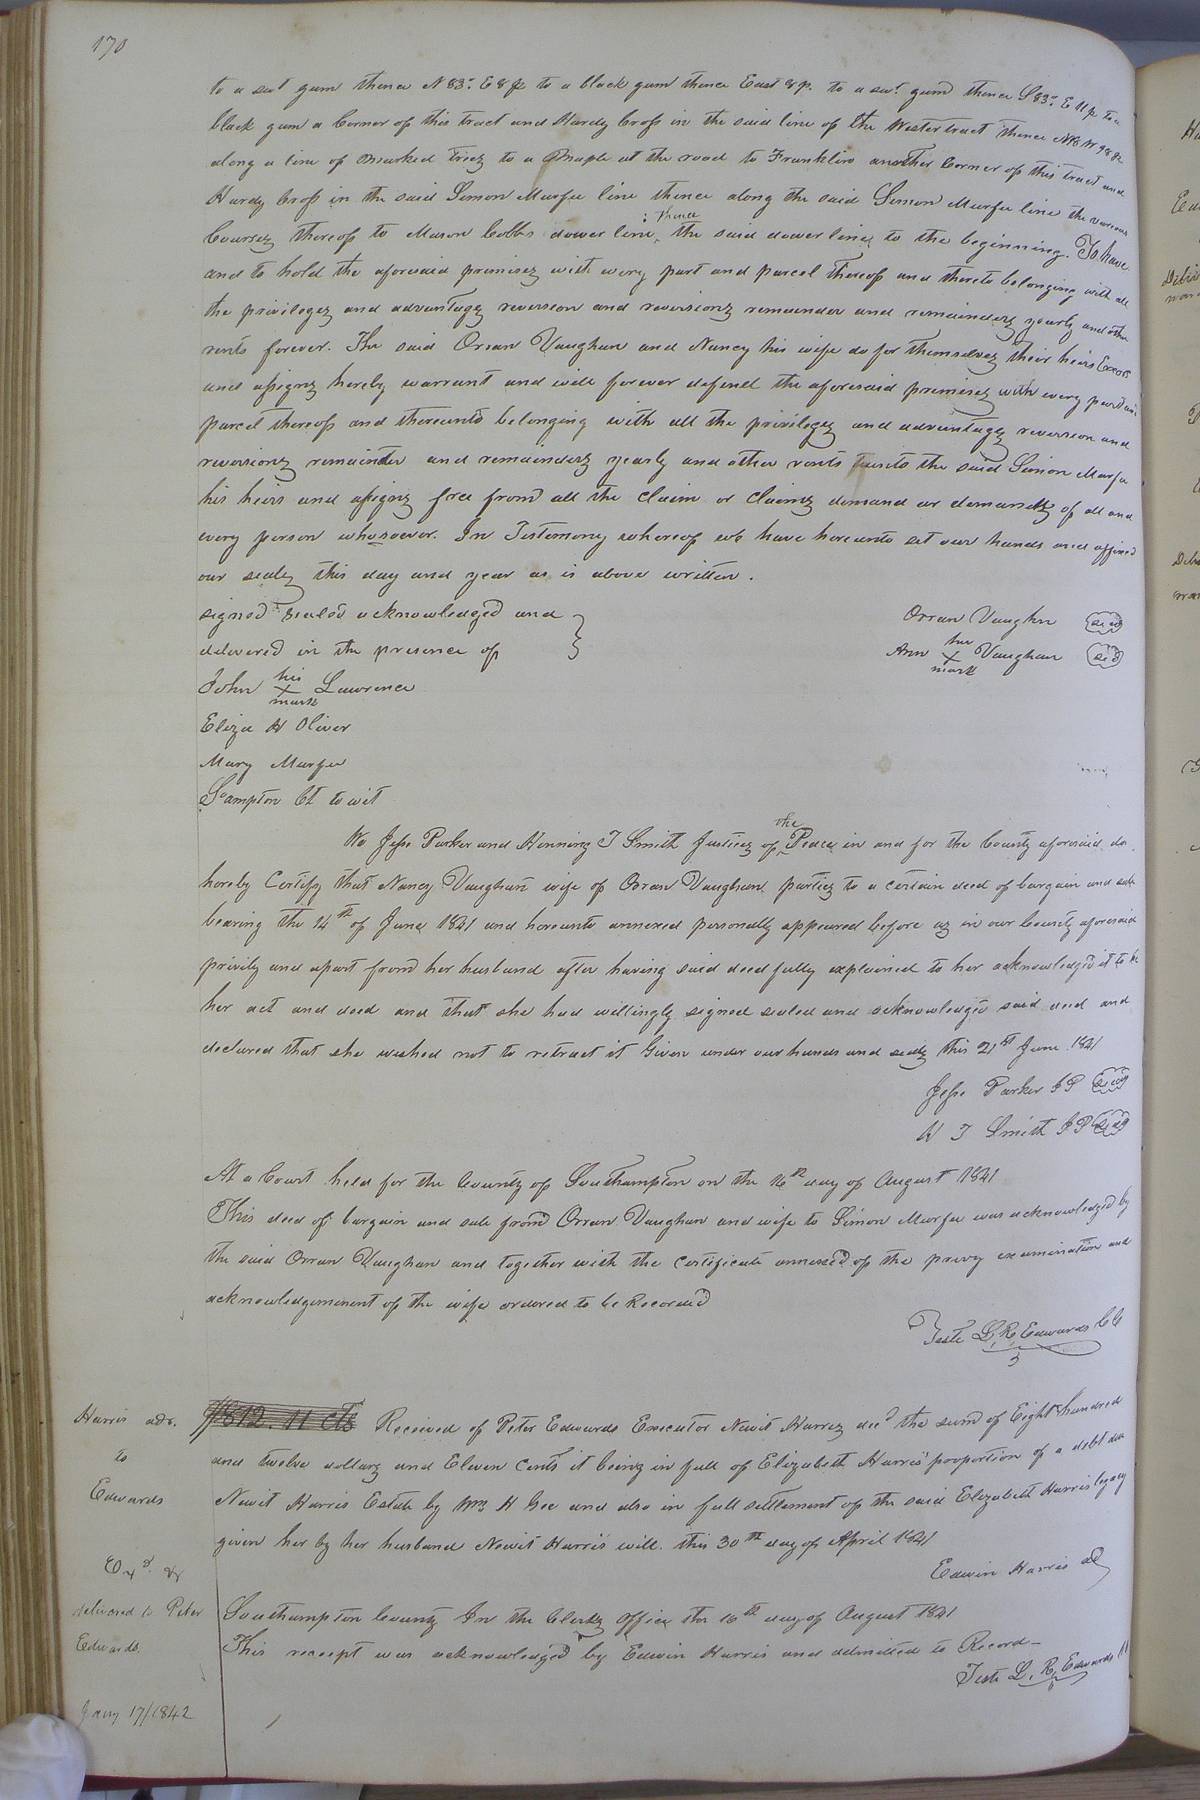 170
to a sw.t gum thence N 83° E 8 p to a black gum thence East 8 p. to a sw.t gum thence S 83° E 11 p to a
black gum a Corner of this tract and Hardy Cross in the said line of the Wester tract thence N 18 W 98 p
along a line of marked trees to a Maple at the road to Franklin another Corner of this tract and
Hardy Cross in the said Simon Murfee line thence along the said Simon Murfee line the various
Courses thereof to Mason Cobbs dower line, thence the said dower line to the beginning. To have
and to hold the aforesaid premises with every part and parcel thereof and thereto belonging with all
the privileges and advantages reversion and reversions remainder and remainders yearly and other
rents forever. The said Orran Vaughan and Nancy his wife do for themselves their heirs Exors
and assigns hereby warrant and will forever defend the aforesaid premises with every part and
parcel thereof and thereunto belonging with all the privileges and advantages reversion and
reversions remainder and remainders yearly and other rents unto the said Simon Murfee
his heirs and assigns free from all the claim or claims demand or demands of all and
every person whosoever. In Testimony whereof we have hereunto set our hands and affixed
our seals this day and year as is above written.
signed sealed acknowledged and Orran Vaughn seal
delivered in the presence of Ann her X mark Vaughan seal
John his X mark Lawrence
Eliza H Oliver
Mary Murfee
S°ampton Ct to wit
We Jesse Parker and Henning T Smith Justices of the Peace in and for the County aforesaid do
hereby Certify that Nancy Vaughan wife of Orran Vaughan parties to a certain deed of bargain and sale
bearing the 14th of June 1841 and hereunto annexed personally appeared before us in our County aforesaid
privily and apart from her husband after having said deed fully explained to her acknowledged it to be
her act and deed and that she had willingly signed sealed and acknowledged said deed and
declared that she wished not to retract it Given under our hands and seals this 21st June 1841
Jesse Parker J P seal
H T Smith J P seal
At a Court held for the County of Southampton on the 16th day of August 1841
This deed of bargain and sale from Orran Vaughan and wife to Simon Murfee was acknowledged by
the said Orran Vaughan and together with the Certificate annexed of the privy examination and
acknowledgement of the wife ordered to be Recorded
Teste L. R. Edwards CC
Harris adr.
to
Edwards
Exd. &
delivered to Peter
Edwards
Jany 17/1842
$812. 11 cts Received of Peter Edwards Executor Newit Harris decd the sum of Eight hundred
and twelve dollars and Eleven Cents it being in full of Elizabeth Harris' proportion of a debt due
Newit Harris Estate by Wm H Gee and also in full settlement of the said Elizabeth Harris legacy
given her by her husband Newit Harris will. this 30th day of April 1841
Edwin Harris ad
Southampton County In the Clerks Office the 16th day of August 1841
This receipt was acknowledged by Edwin Harris and admitted to Record—
Teste L. R. Edwards